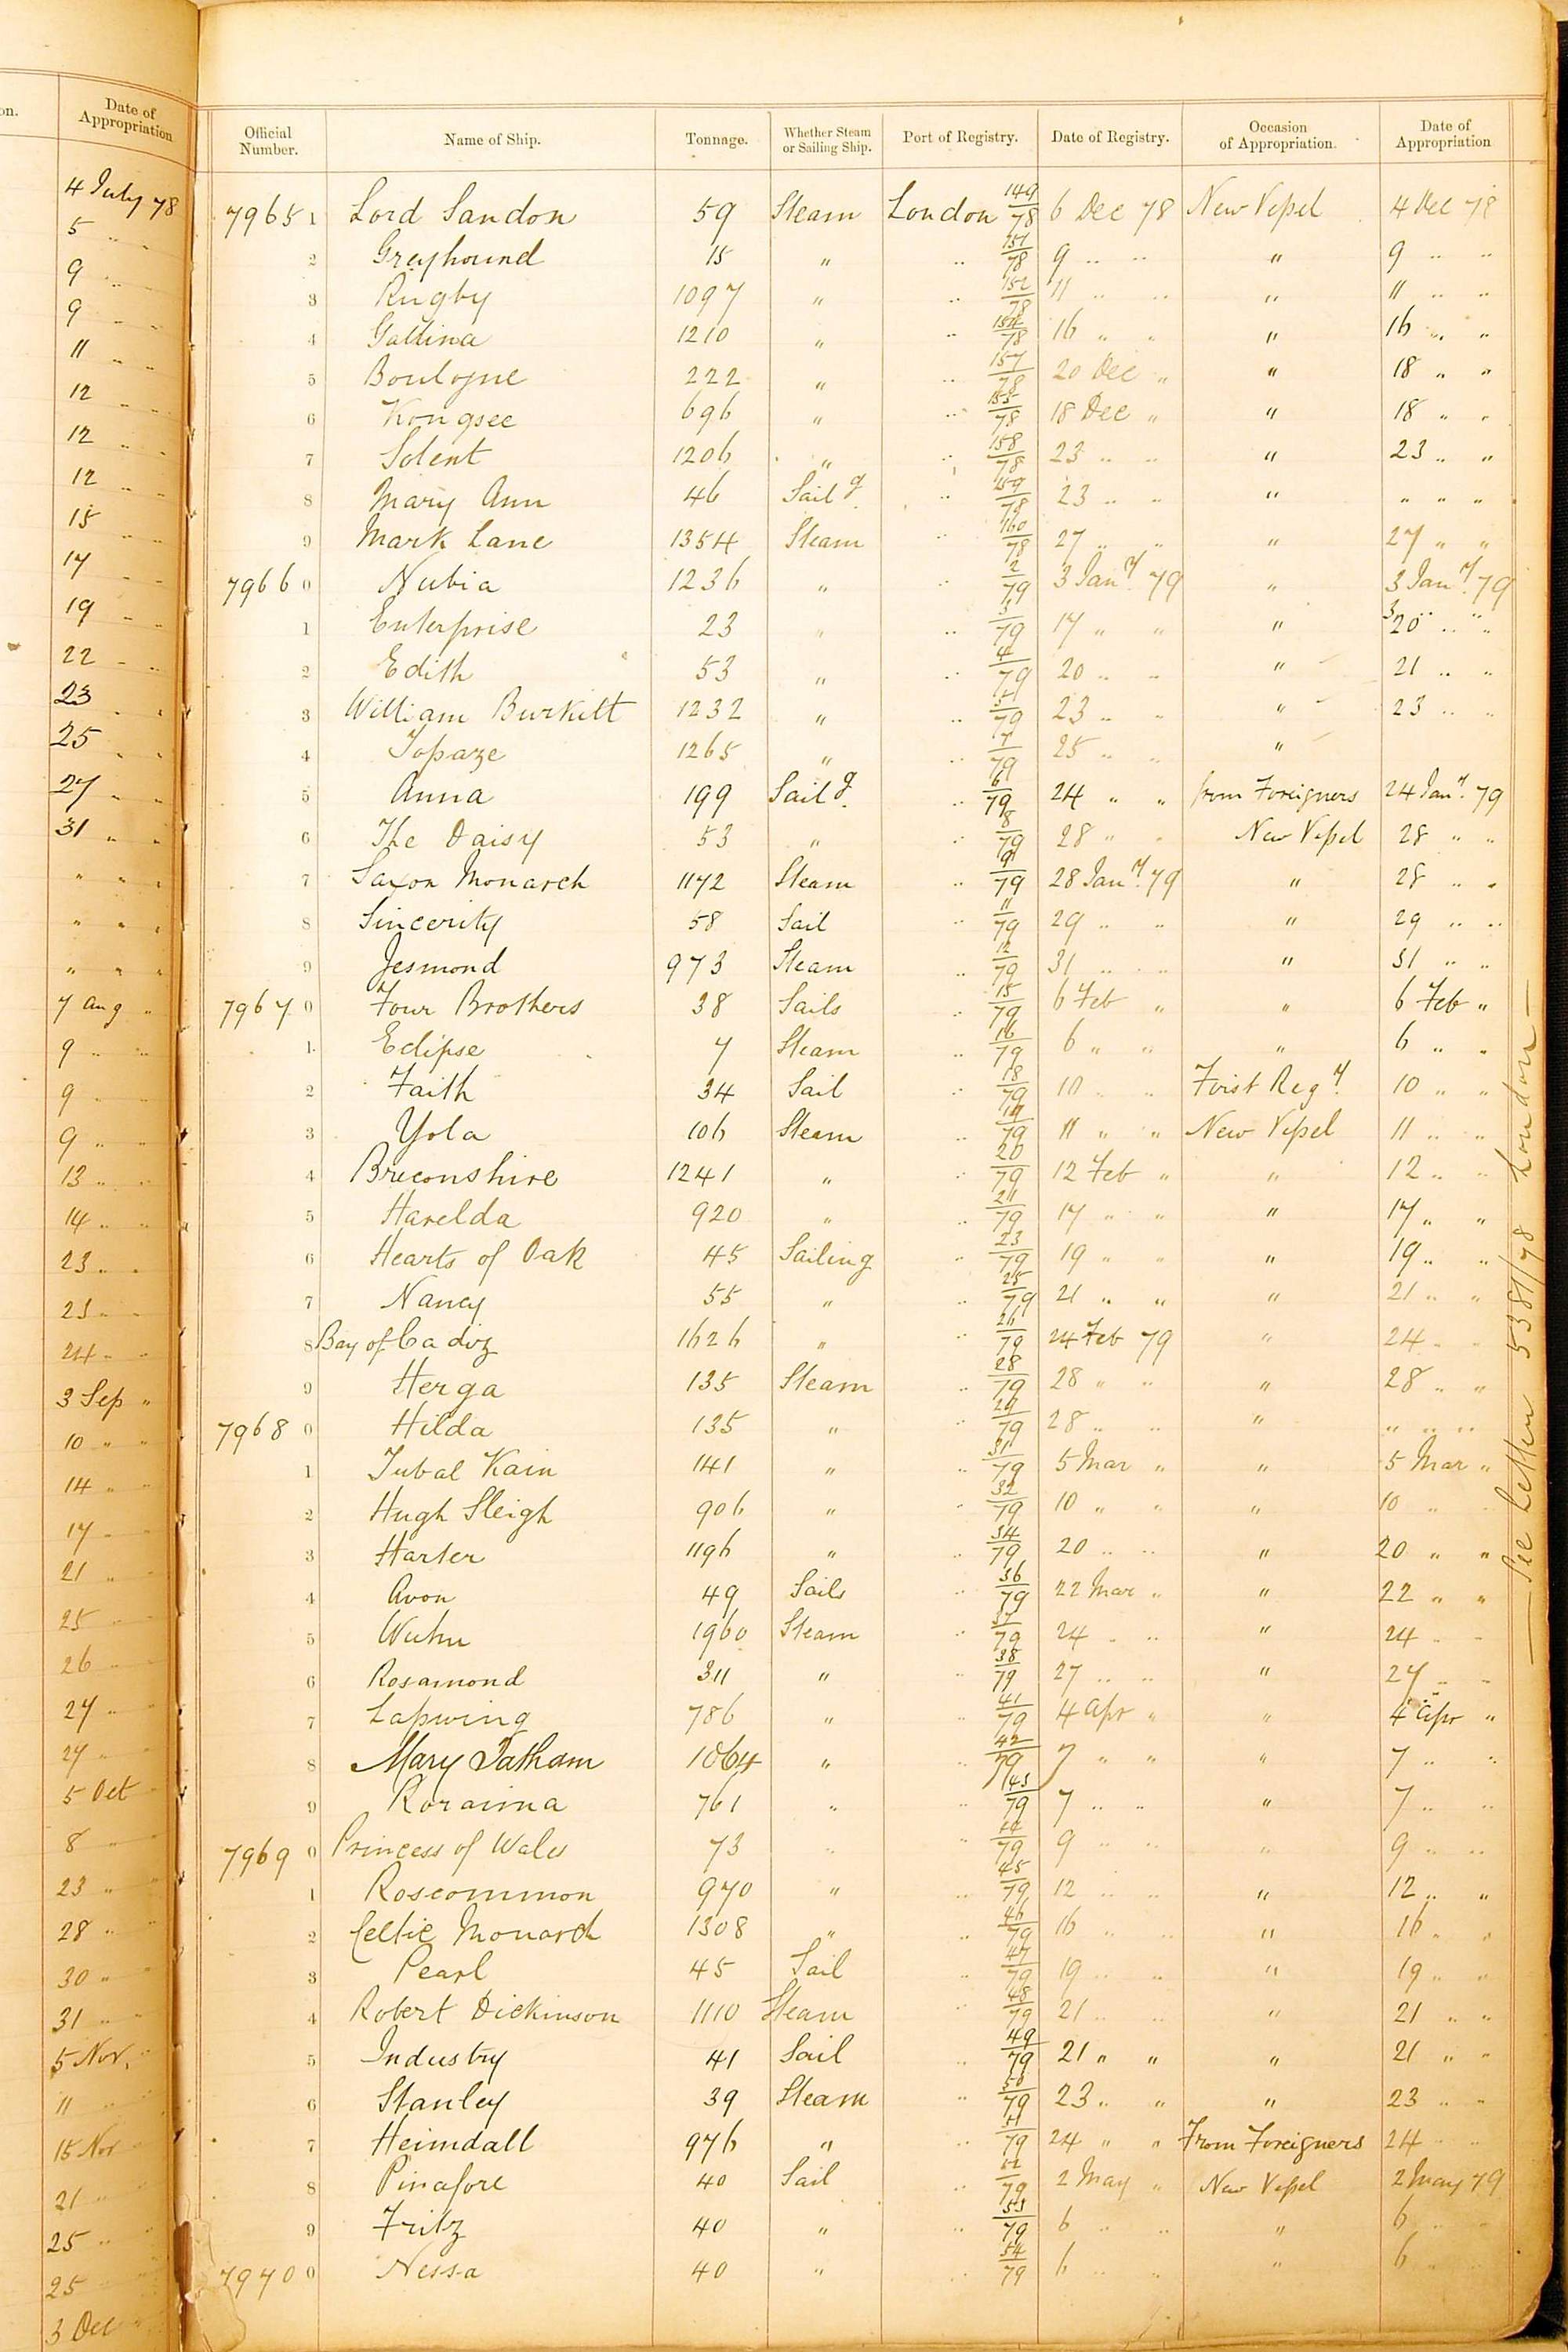 on.
Date of Appropriation
4 July 78
5 " "
9 " "
9 " "
11 " "
12 " "
12 " "
12 " "
15 " "
17 " "
19 " "
22 " "
23 " "
25 " "
27 " "
31 " "
" " "
" " "
" " "
7 Aug "
9 " "
9 " "
9 " "
13 " "
14 " "
23 " "
23 " "
24 " "
3 Sep "
10 " "
14 " "
17 " "
21 " "
25 " "
26 " "
27 " "
27 " "
5 Oct "
8 "
23 " "
28 "
30 " "
31 " "
5 Nov. "
11 "
15 Nov "
21 "
25 "
25 "
3 Dec "
Official Number. Name of Ship. Tonnage. Whether Steam or Sailing Ship. Port of Registry. Date of Registry. Occasion of Appropriation. Date of Appropriation
79651 Lord Sandon 59 Steam London 149/78 6 Dec 78 New Vessel 4 Dec 78
2 Greyhound 15 " " 151/78 9 " " " 9 " "
3 Rugby 1097 " " 152/78 11 " " " 11 " "
4 Gallina 1210 " " /78 16 " " " 16 " "
5 Boulogne 222 " " 157/78 20 Dec " " 18 " "
6 Kongsee 696 " " 155/78 18 Dec " " 18 " "
7 Solent 1206 " " 158/78 23 " " " 23 " "
8 Mary Ann 46 Sailg. " 159/78 23 " " " " " "
9 Mark Lane 1354 Steam " 160/78 27 " " " 27 " "
79660 Nubia 1236 " " 2/79 3 Jany. 79 " 3 Jany. 79
1 Enterprise 23 " " 3/79 17 " " " 20 " "
2 Edith 53 " " 4/79 20 " " " 21 " "
3 William Burkitt 1232 " " 5/79 23 " " " 23 " "
4 Topaze 1265 " " 7/79 25 " " "
5 Anna 199 Sailg. " 6/79 24 " " from Foreigners 24 Jany. 79
6 The Daisy 53 " " 8/79 28 " " New Vessel 28 " "
7 Saxon Monarch 1172 Steam " 9/79 28 Jany. 79 " 28 " "
8 Sincerity 58 Sail " 11/79 29 " " " 29 " "
9 Jesmond 973 Steam " 12/79 31 " " " 31 " "
79670 Four Brothers 38 Sails " 15/79 6 Feb " " 6 Feb "
1 Eclipse 7 Steam " 16/79 6 " " " 6 " "
2 Faith 34 Sail " 18/79 10 " " First Regy. 10 " "
3 Yola 106 Steam " 19/79 11 " " New Vessel 11 " "
4 Breconshire 1241 " " 20/79 12 Feb " " 12 " "
5 Harelda 920 " " 21/79 17 " " " 17 " "
6 Hearts of Oak 45 Sailing " 23/79 19 " " " 19 " "
7 Nancy 55 " " 25/79 21 " " " 21 " "
8 Bay of Cadiz 1626 " " 26/79 24 Feb 79 " 24 " "
9 Herga 135 Steam " 28/79 28 " " " 28 " "
79680 Hilda 135 " " 29/79 28 " " " " " "
1 Tubal Kain 141 " " 31/79 5 Mar " " 5 Mar "
2 Hugh Sleigh 906 " " 32/79 10 " " " 10 "
3 Harter 1196 " " 34/79 20 " " " 20 " "
4 Avon 49 Sails " 36/79 22 Mar " " 22 " "
5 Wuhu 1960 Steam " 37/79 24 " " " 24 " "
6 Rosamond 311 " " 38/79 27 " " " 27 " "
7 Lapwing 786 " " 41/79 4 Apr " " 4 Apr "
8 Mary Tatham 1064 " " 42/79 7 " " " 7 " "
9 Roraima 761 " " 43/79 7 " " " 7 " "
79690 Princess of Wales 73 " " 44/79 9 " " " 9 " "
1 Roscommon 970 " " 45/79 12 " " " 12 " "
2 Celtic Monarch 1308 " " 46/79 16 " " " 16 " "
3 Pearl 45 Sail " 47/79 19 " " " 19 " "
4 Robert Dickinson 1110 Steam " 48/79 21 " " " 21 " "
5 Industry 41 Sail " 49/79 21 " " " 21 " "
6 Stanley 39 Steam " 50/79 23 " " " 23 " "
7 Heimdall 976 " " 51/79 24 " " From Foreigners 24 " "
8 Pinafore 40 Sail " 52/79 2 May " New Vessel 2 May 79
9 Fritz 40 " " 53/79 6 " " " 6 " "
79700 Nessa 40 " " 54/79 6 " " " 6 "
— See Letter 5381/78 London —